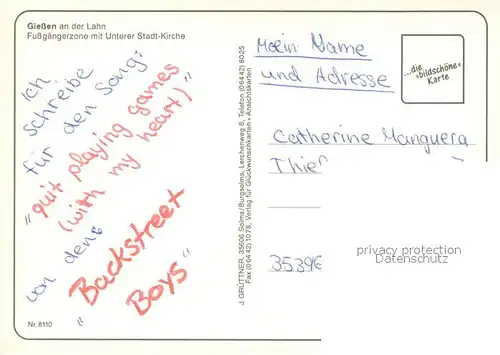 Gießen an der Lahn
Fußgängerzone mit Unterer Stadt-Kirche
Ich
schreibe
für den Song:
"quit playing games
(with my heart)"
von den
"Backstreet
Boys"
Nr. 8110
J. GRÜTTNER, 35606 Solms/Burgsolms, Lerchenweg 8, Telefon (0 64 42) 80 25
Fax (0 64 42) 10 78, Verlag für Glückwunschkarten • Ansichtskarten
Mein Name
und Adresse
...die
»bildschöne«
Karte
Catherine Manguera
Thier
35396
privacy protection
Datenschutz